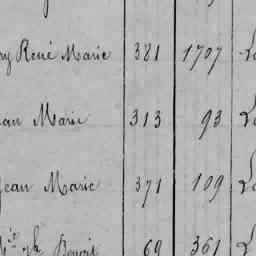 René Marie 381 1707
Marie 313 93
Jean Marie 371 109
Benoit 69 361